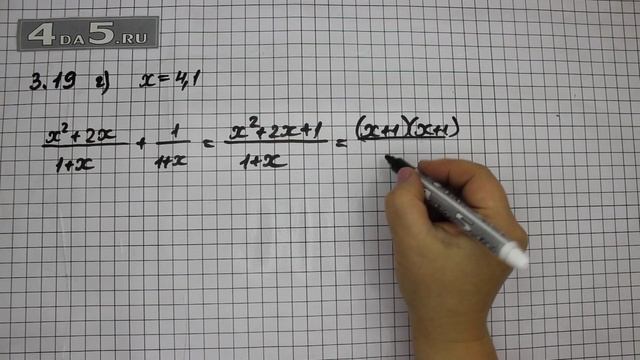 4DA5.RU
3.19 г) x = 4,1
x²+2x/1+x + 1/1+x = x²+2x+1/1+x = (x+1)(x+1)